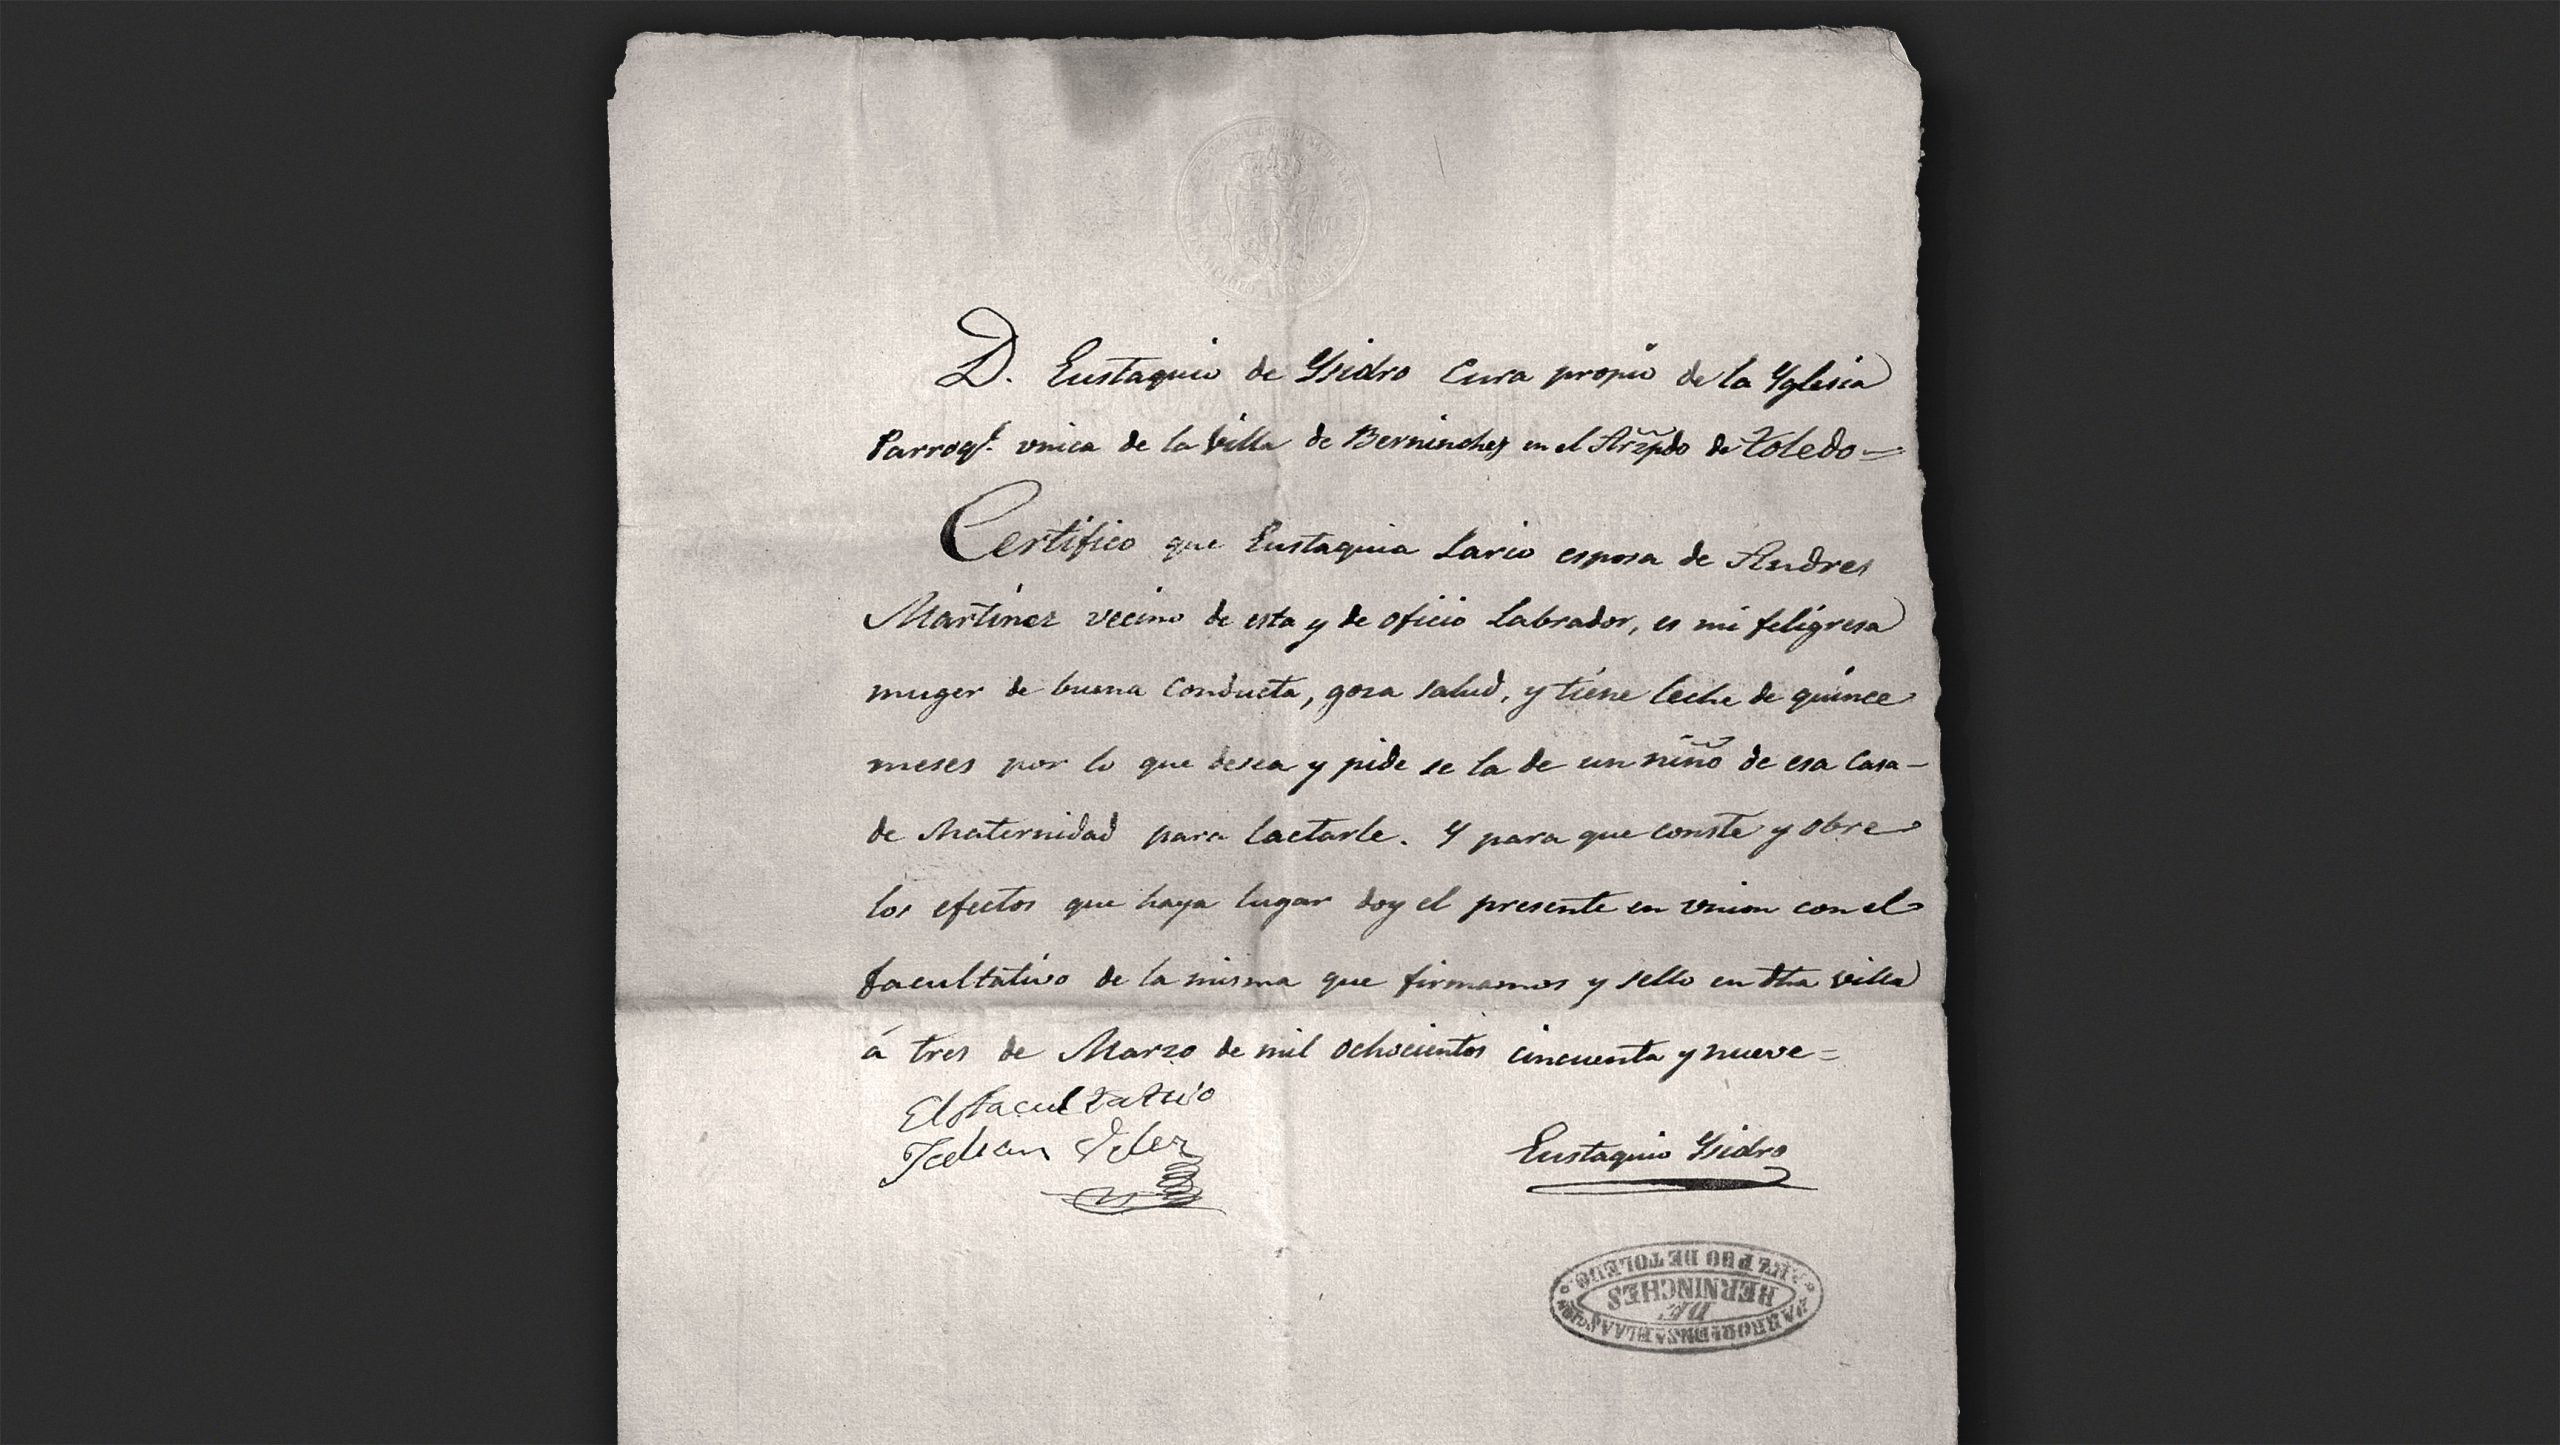 D. Eustaquio de Ysidro Cura propio de la Yglesia
Parroql. vnica de la Villa de Berninches en el Arzpdo de Toledo=
Certifico que Eustaquia Lario esposa de Andres
Martinez vecino de esta y de oficio Labrador, es mi feligresa
muger de buena conducta, goza salud, y tiene leche de quince
meses por lo que desea y pide se la de un niño de esa Casa-
de Maternidad para lactarle. Y para que conste y obre
los efectos que haya lugar doy el presente en vnion con el
facultativo de la misma que firmamos y sello en dha villa
á tres de Marzo de mil ochocientos cincuenta y nueve=
El facultativo
Eustaquio Ysidro
ARZPDO DE TOLEDO
BERNINCHES
DE